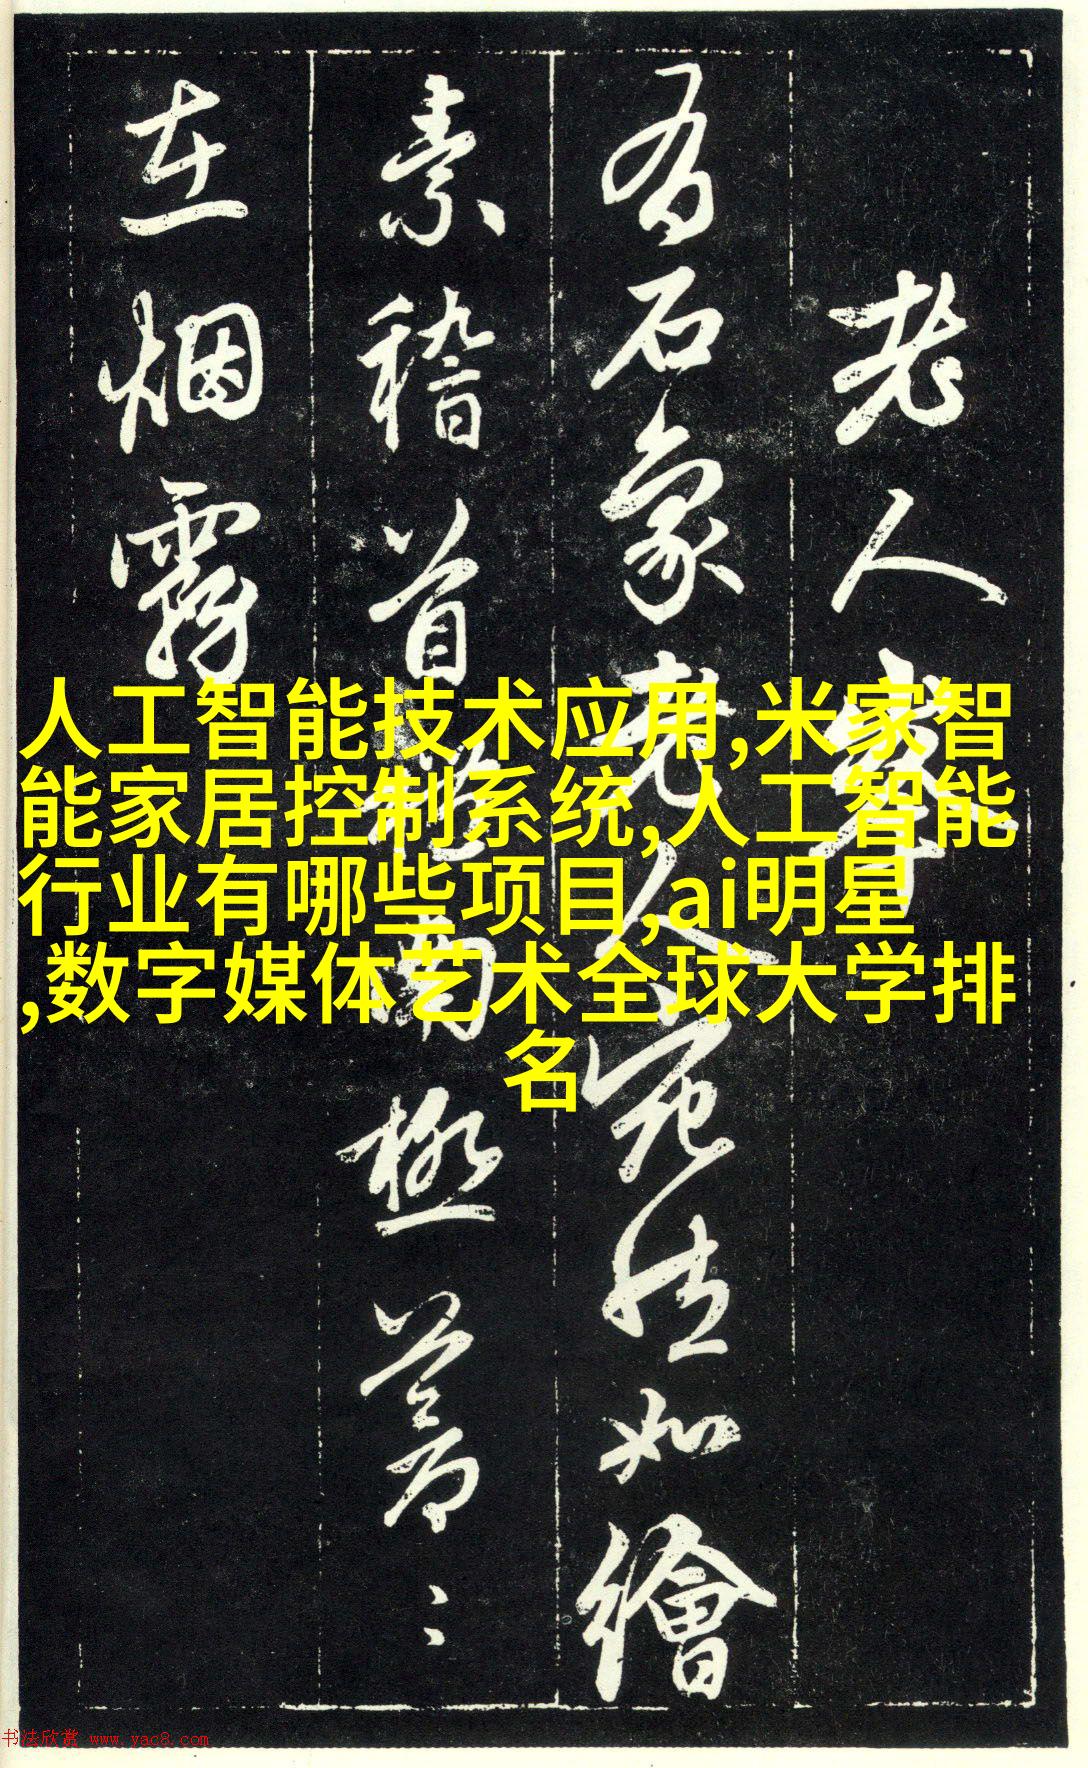 老人峯
有石象老人宛然如繪
素稽首禮南極蒼〻
在烟霧
人工智能技术应用,米家智
能家居控制系统,人工智能
行业有哪些项目,ai明星
,数字媒体艺术全球大学排
名
书法欣赏 www.yac8.com